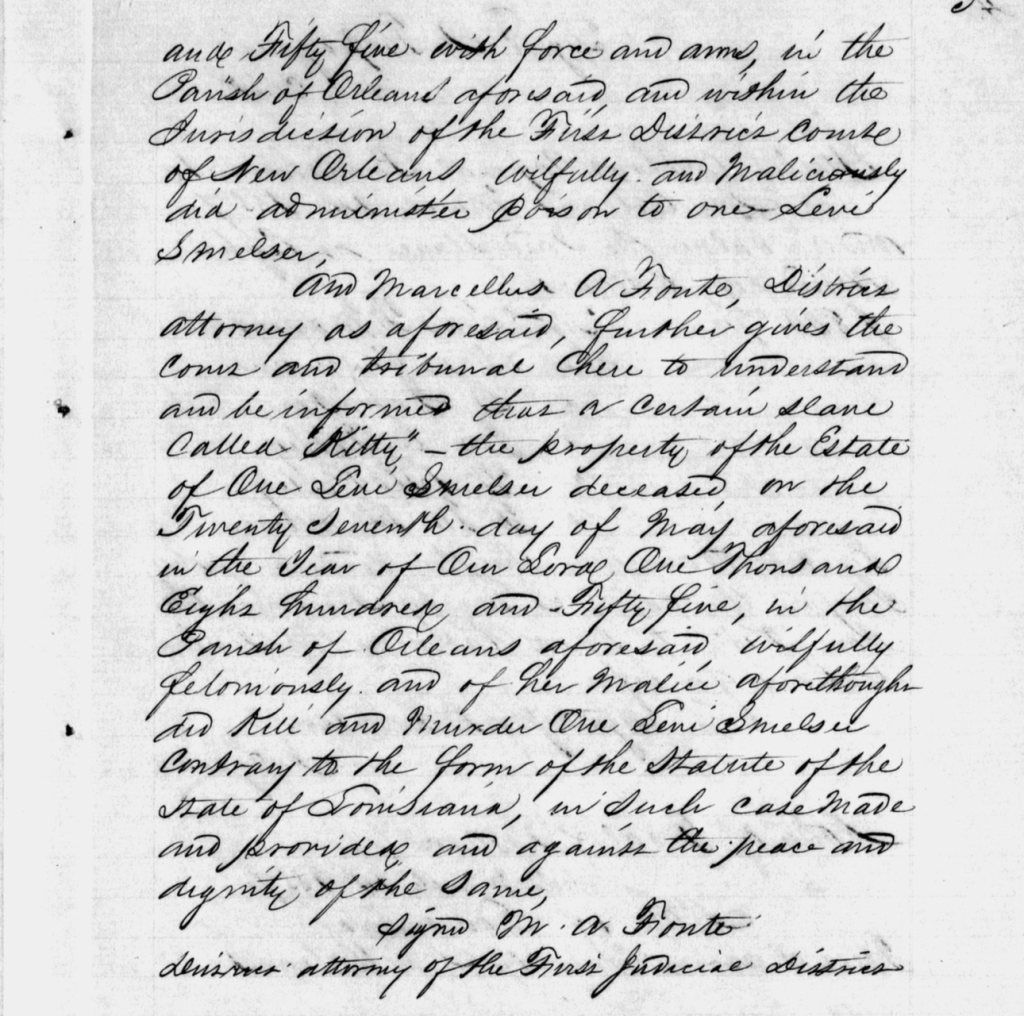 and Fifty five with force and arms, in the
Parish of Orleans aforesaid, and within the
Jurisdiction of the First District Court
of New Orleans wilfully and Maliciously
did administer poison to one Levi
Smelser,
And Marcellus A Foute, District
attorney as aforesaid, further gives the
Court and tribunal here to understand
and be informed that a certain slave
Called "Kitty," - the property of the Estate
of One Levi Smelser deceased on the
Twenty Seventh day of May aforesaid
in the Year of Our Lord One Thousand
Eight hundred and Fifty five, in the
Parish of Orleans aforesaid wilfully
feloniously and of her Malice aforethought
did Kill and Murder One Levi Smelser
Contrary to the form of the Statute of the
State of Louisiana, in such case Made
and provided and against the peace and
dignity of the same,
Signed M. A Foute
District attorney of the First Judicial District